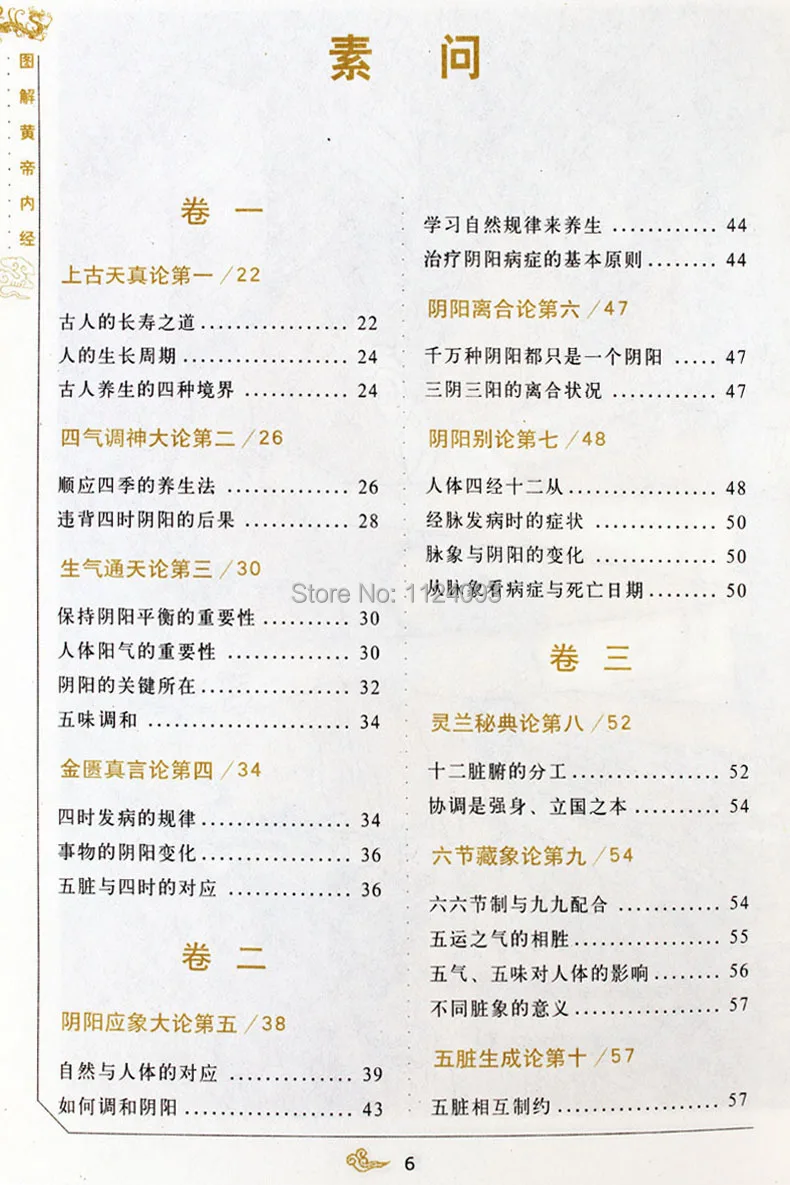 图解黄帝内经
素 问
卷 一
上古天真论第一/22
古人的长寿之道................ 22
人的生长周期.................. 24
古人养生的四种境界 ............ 24
四气调神大论第二/26
顺应四季的养生法 .............. 26
违背四时阴阳的后果 ............ 28
生气通天论第三/30
保持阴阳平衡的重要性........... 30
人体阳气的重要性 .............. 30
阴阳的关键所在................ 32
五味调和 ..................... 34
金匮真言论第四/34
四时发病的规律................ 34
事物的阴阳变化................ 36
五脏与四时的对应 .............. 36
卷 二
阴阳应象大论第五/38
自然与人体的对应 .............. 39
如何调和阴阳.................. 43
学习自然规律来养生 ............ 44
治疗阴阳病症的基本原则........ 44
阴阳离合论第六/47
千万种阴阳都只是一个阴阳 ..... 47
三阴三阳的离合状况 ............ 47
阴阳别论第七/48
人体四经十二从................ 48
经脉发病时的症状 .............. 50
脉象与阴阳的变化 .............. 50
从脉象看病症与死亡日期........ 50
卷 三
灵兰秘典论第八/52
十二脏腑的分工................ 52
协调是强身、立国之本........... 54
六节藏象论第九/54
六六节制与九九配合 ............ 54
五运之气的相胜................ 55
五气、五味对人体的影响......... 56
不同脏象的意义................ 57
五脏生成论第十/57
五脏相互制约.................. 57
6
Store No: 1124093